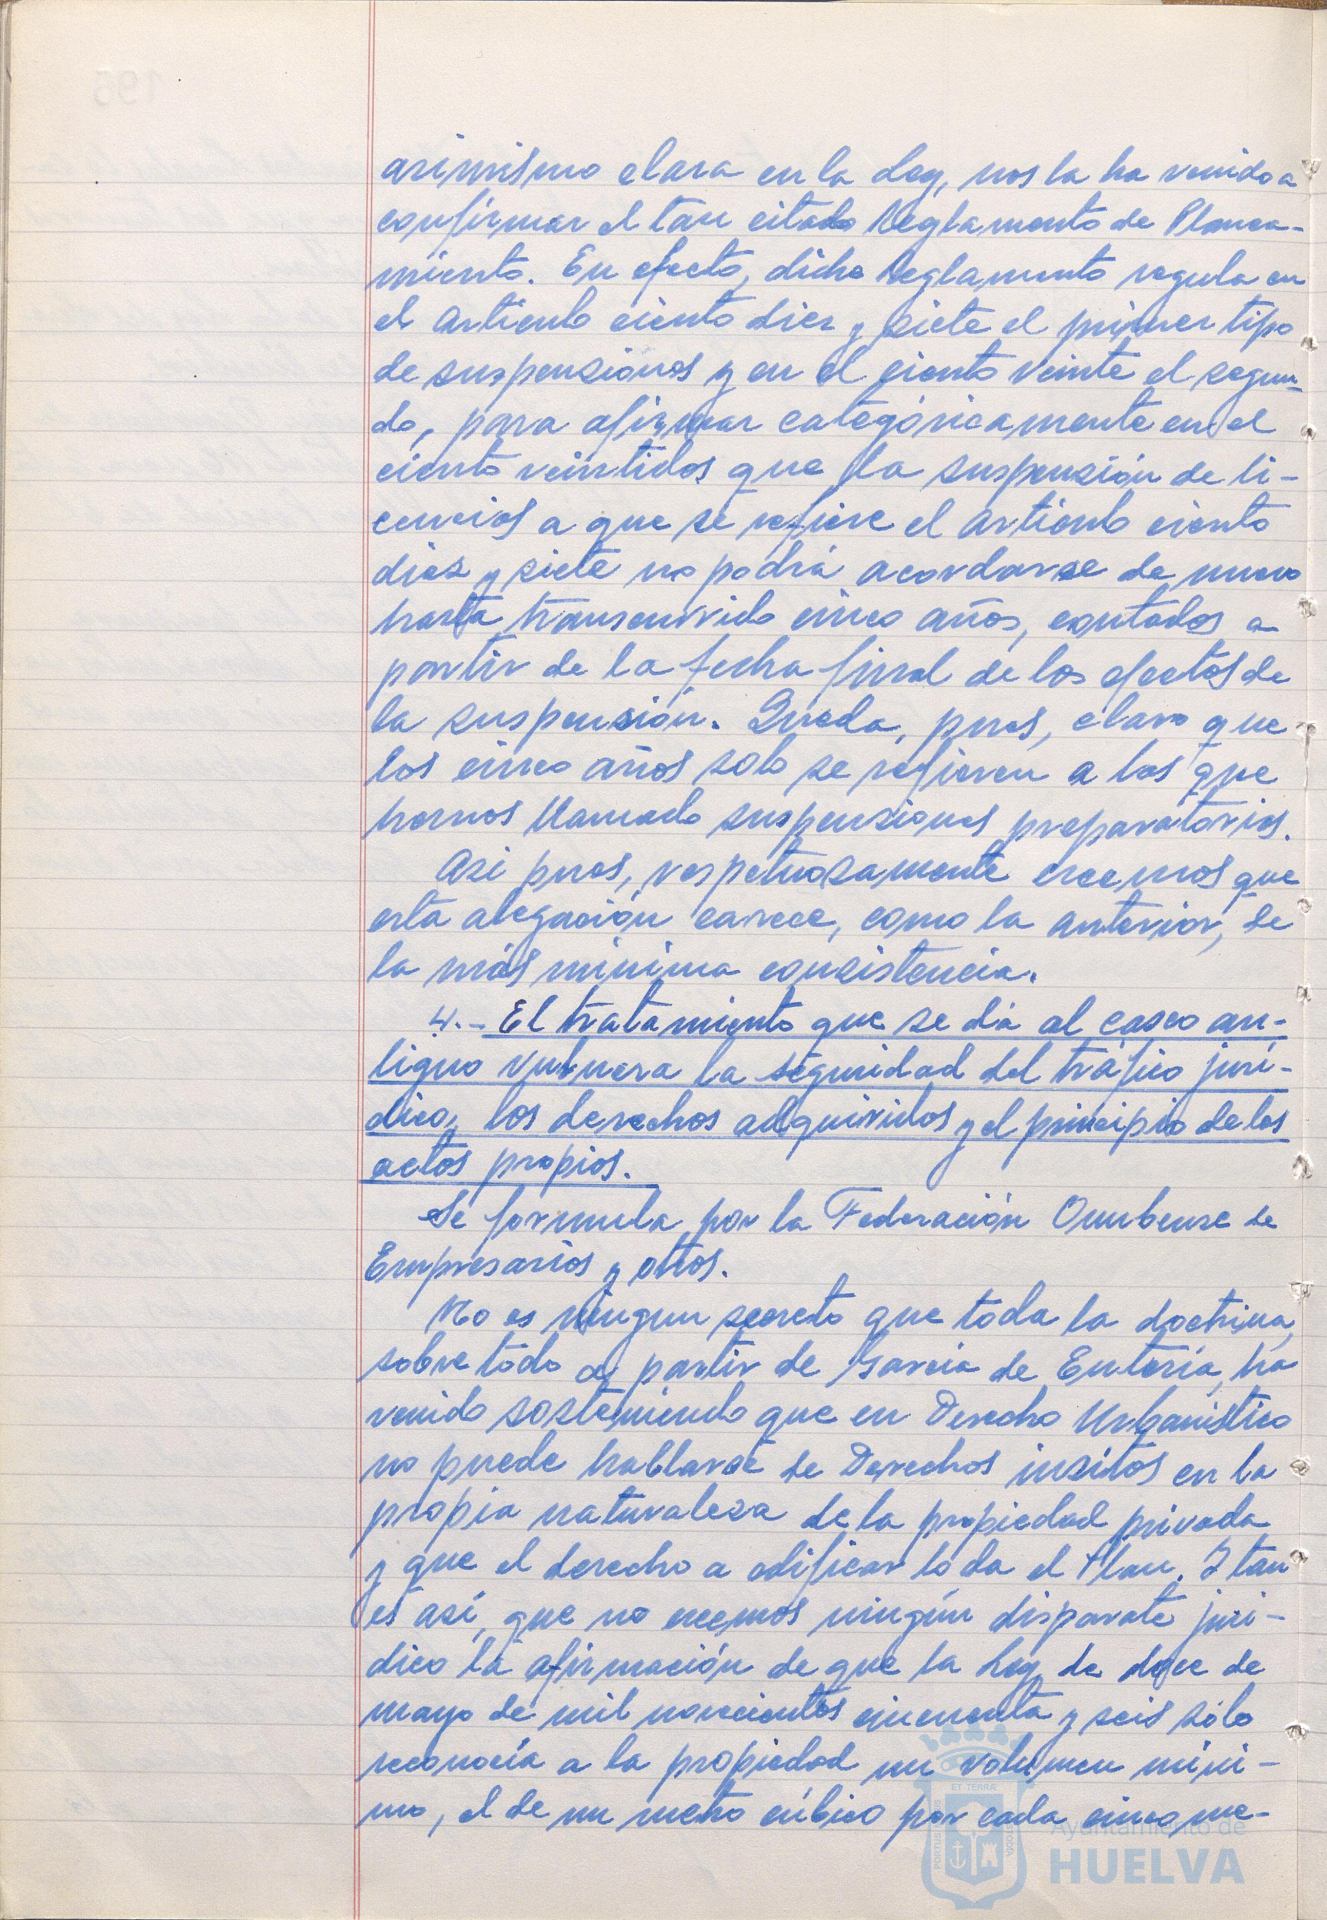 asimismo clara en la Ley, nos la ha venido a
confirmar el tan citado Reglamento de Planea-
miento. En efecto, dicho Reglamento regula en
el artículo ciento diez y siete el primer tipo
de suspensiones y en el ciento veinte el segun-
do, para afirmar categóricamente en el
ciento veintidos que la suspensión de li-
cencias a que se refiere el artículo ciento
diez y siete no podrá acordarse de nuevo
hasta transcurrido cinco años, contados a
partir de la fecha final de los efectos de
la suspensión. Queda, pues, claro que
los cinco años solo se refieren a las que
hemos llamado suspensiones preparatorias.
Asi pues, respetuosamente creemos que
esta alegación carece, como la anterior, de
la más minima consistencia.
4.- El tratamiento que se dá al casco an-
tiguo vulnera la seguridad del tráfico jurí-
dico, los derechos adquiridos y el principio de los
actos propios.
Se formula por la Federación Onubense de
Empresarios y otros.
No es ningun secreto que toda la doctrina,
sobre todo a partir de García de Enterría, ha
venido sosteniendo que en Derecho Urbanístico
no puede hablarse de Derechos insitos en la
propia naturaleza de la propiedad privada
y que el derecho a edificar lo da el Plan. Y tan
es así, que no creemos ningún disparate jurí-
dico la afirmación de que la Ley de doce de
mayo de mil novecientos cincuenta y seis sólo
reconocía a la propiedad un volumen míni-
mo, el de un metro cúbico por cada cinco me-
Ayuntamiento de
HUELVA